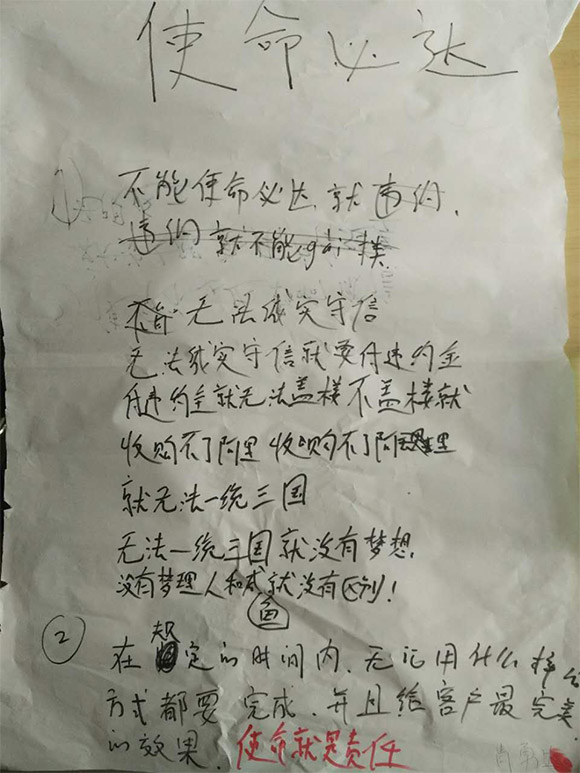 使命必达
① 不能使命必达 就违约.
违约就不能gai楼.
不能 无法诚实守信
无法诚实守信就要付违约金
付违约金就无法盖楼 不盖楼就
收购不了阿里 收购不了阿里
就无法一统三国
无法一统三国就没有梦想.
没有梦理人和咸就没有区别!
鱼
② 在规定的时间内、无论用什么样
方式都要完成、并且给客户最完美
的效果. 使命就是责任